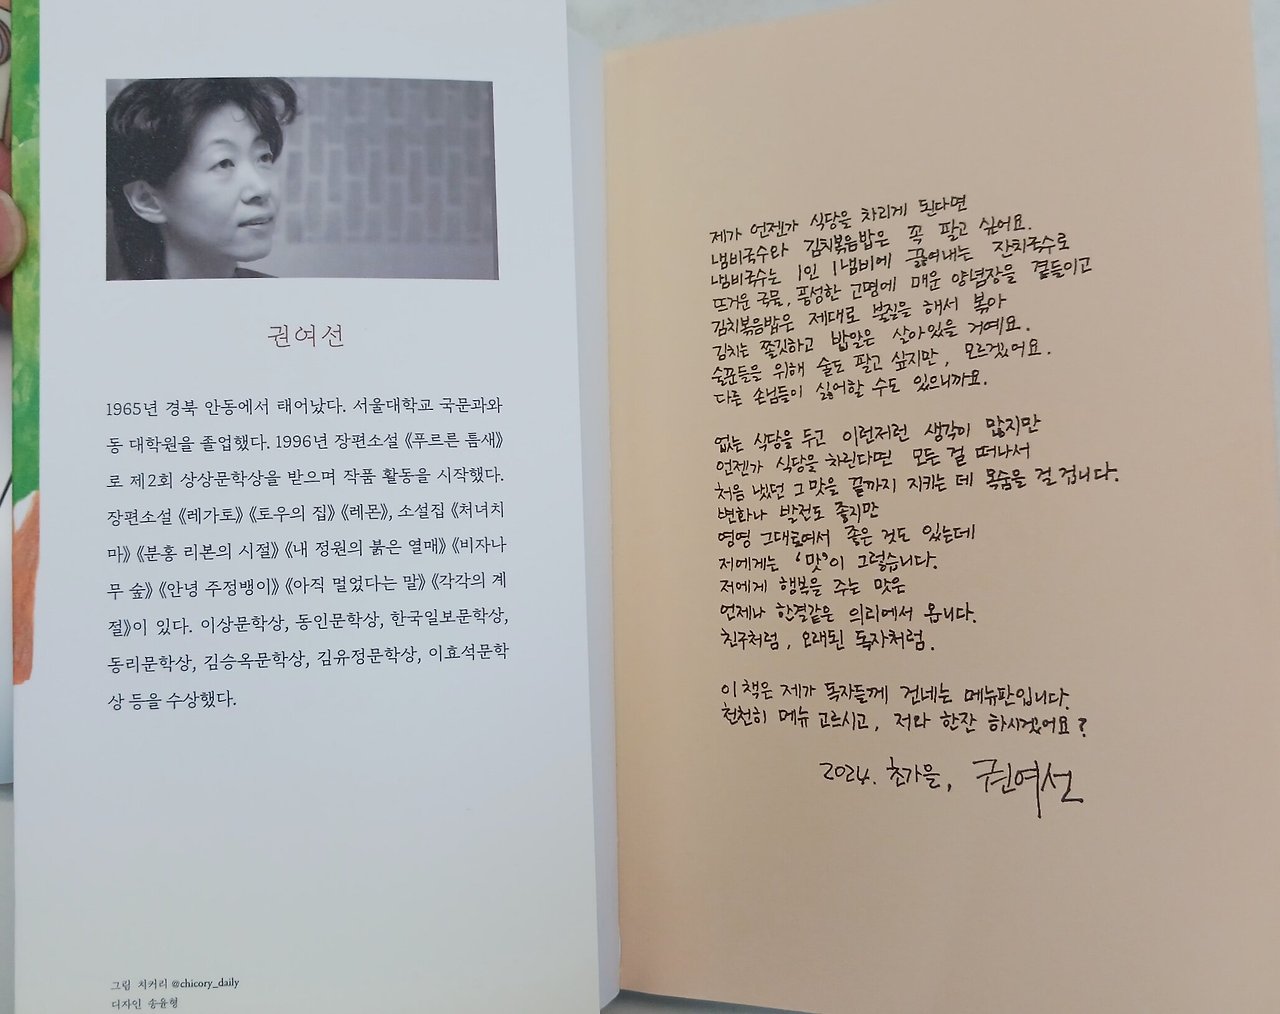 권여선
1965년 경북 안동에서 태어났다. 서울대학교 국문과와
동 대학원을 졸업했다. 1996년 장편소설 《푸르른 틈새》
로 제2회 상상문학상을 받으며 작품 활동을 시작했다.
장편소설 《레가토》 《토우의 집》 《레몬》, 소설집 《처녀치
마》 《분홍 리본의 시절》 《내 정원의 붉은 열매》 《비자나
무 숲》 《안녕 주정뱅이》 《아직 멀었다는 말》 《각각의 계
절》이 있다. 이상문학상, 동인문학상, 한국일보문학상,
동리문학상, 김승옥문학상, 김유정문학상, 이효석문학
상 등을 수상했다.
그림 치커리 @chicory_daily
디자인 송윤형
제가 언젠가 식당을 차리게 된다면
냄비국수와 김치볶음밥은 꼭 팔고 싶어요.
냄비국수는 1인 1냄비에 끓여내는 잔치국수로
뜨거운 국물, 풍성한 고명에 매운 양념장을 곁들이고
김치볶음밥은 제대로 불질을 해서 볶아
김치는 쫄깃하고 밥알은 살아있을 거예요.
술꾼들을 위해 술도 팔고 싶지만, 모르겠어요.
다른 손님들이 싫어할 수도 있으니까요.
없는 식당을 두고 이런저런 생각이 많지만
언젠가 식당을 차린다면 모든 걸 떠나서
처음 냈던 그 맛을 끝까지 지키는 데 목숨을 걸 겁니다.
변화나 발전도 좋지만
영영 그대로여서 좋은 것도 있는데
저에게는 '맛'이 그렇습니다.
저에게 행복을 주는 맛은
언제나 한결같은 의리에서 옵니다.
친구처럼, 오래된 독자처럼.
이 책은 제가 독자들께 건네는 메뉴판입니다.
천천히 메뉴 고르시고, 저와 한잔 하시겠어요?
2024. 초가을, 권여선